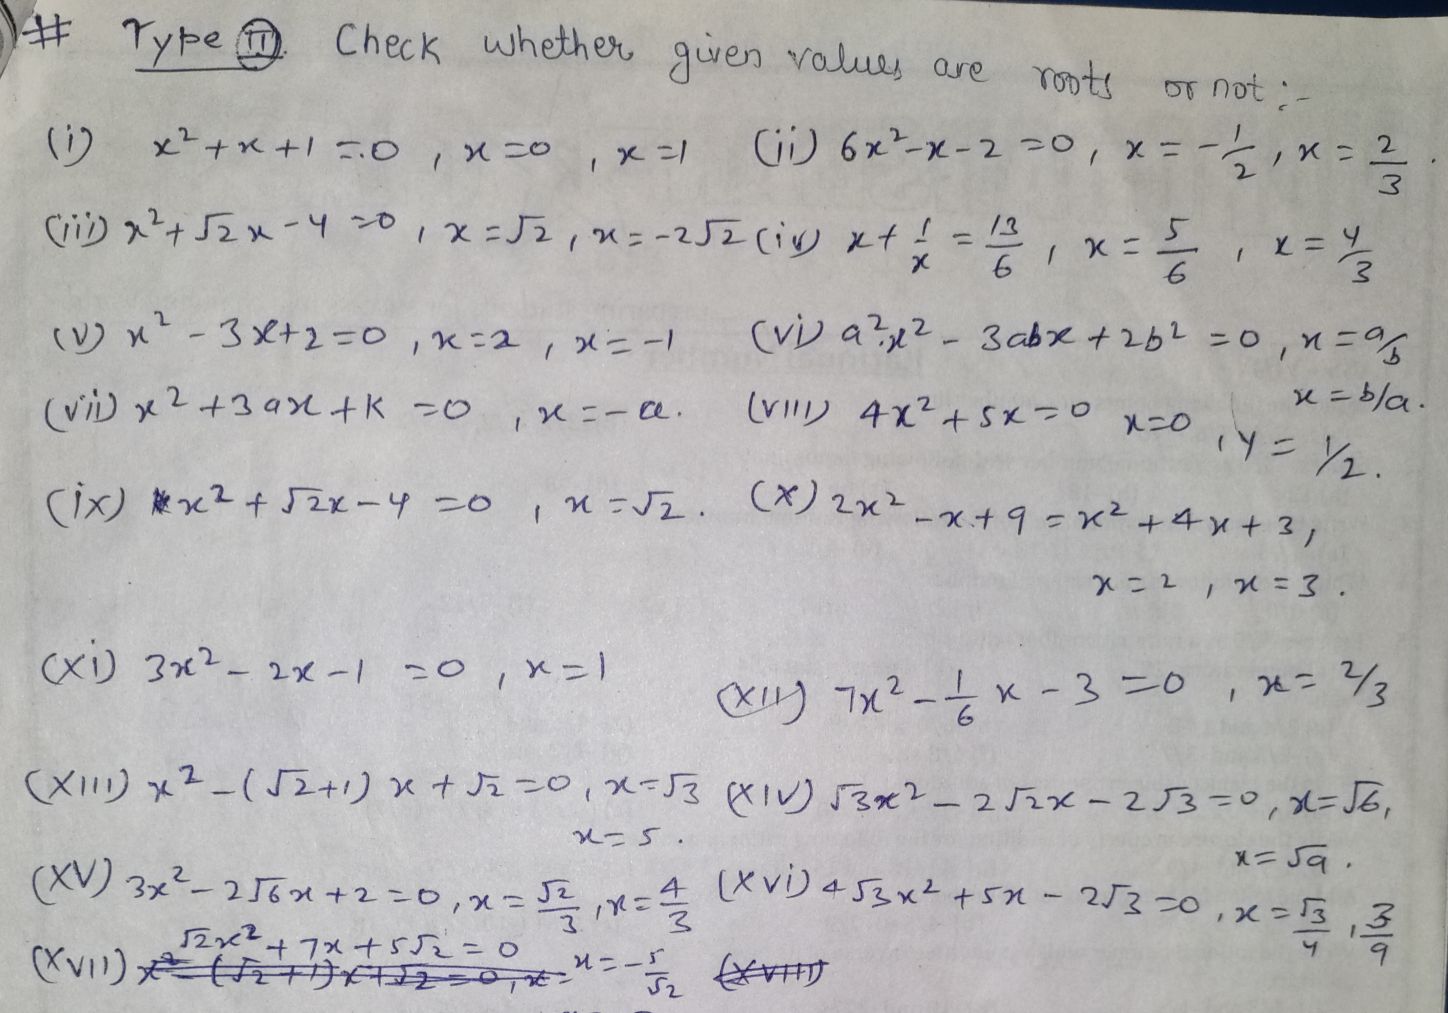 # Type (II). Check whether given values are roots or not :-
(i) x² + x + 1 = 0 , x = 0 , x = 1 (ii) 6x² - x - 2 = 0 , x = -1/2 , x = 2/3 .
(iii) x² + √2 x - 4 = 0 , x = √2 , x = -2√2 (iv) x + 1/x = 13/6 , x = 5/6 , x = 4/3
(v) x² - 3x + 2 = 0 , x = 2 , x = -1 (vi) a²x² - 3abx + 2b² = 0 , x = a/b
x = b/a .
(vii) x² + 3ax + k = 0 , x = -a . (viii) 4x² + 5x = 0 x = 0 , y = 1/2 .
(ix) x² + √2x - 4 = 0 , x = √2 . (x) 2x² - x + 9 = x² + 4x + 3 ,
x = 2 , x = 3 .
(xi) 3x² - 2x - 1 = 0 , x = 1
(xii) 7x² - 1/6 x - 3 = 0 , x = 2/3
(xiii) x² - (√2+1) x + √2 = 0 , x = √3 (xiv) √3x² - 2√2x - 2√3 = 0 , x = √6 ,
x = 5 .
x = √a .
(xv) 3x² - 2√6x + 2 = 0 , x = √2/3 , x = 4/3 (xvi) 4√3x² + 5x - 2√3 = 0 , x = √3/4 , 3/9
√2x² + 7x + 5√2 = 0
(xvii) x² - (√2+1)x + √2 = 0 , x = x = -5/√2 (xviii)